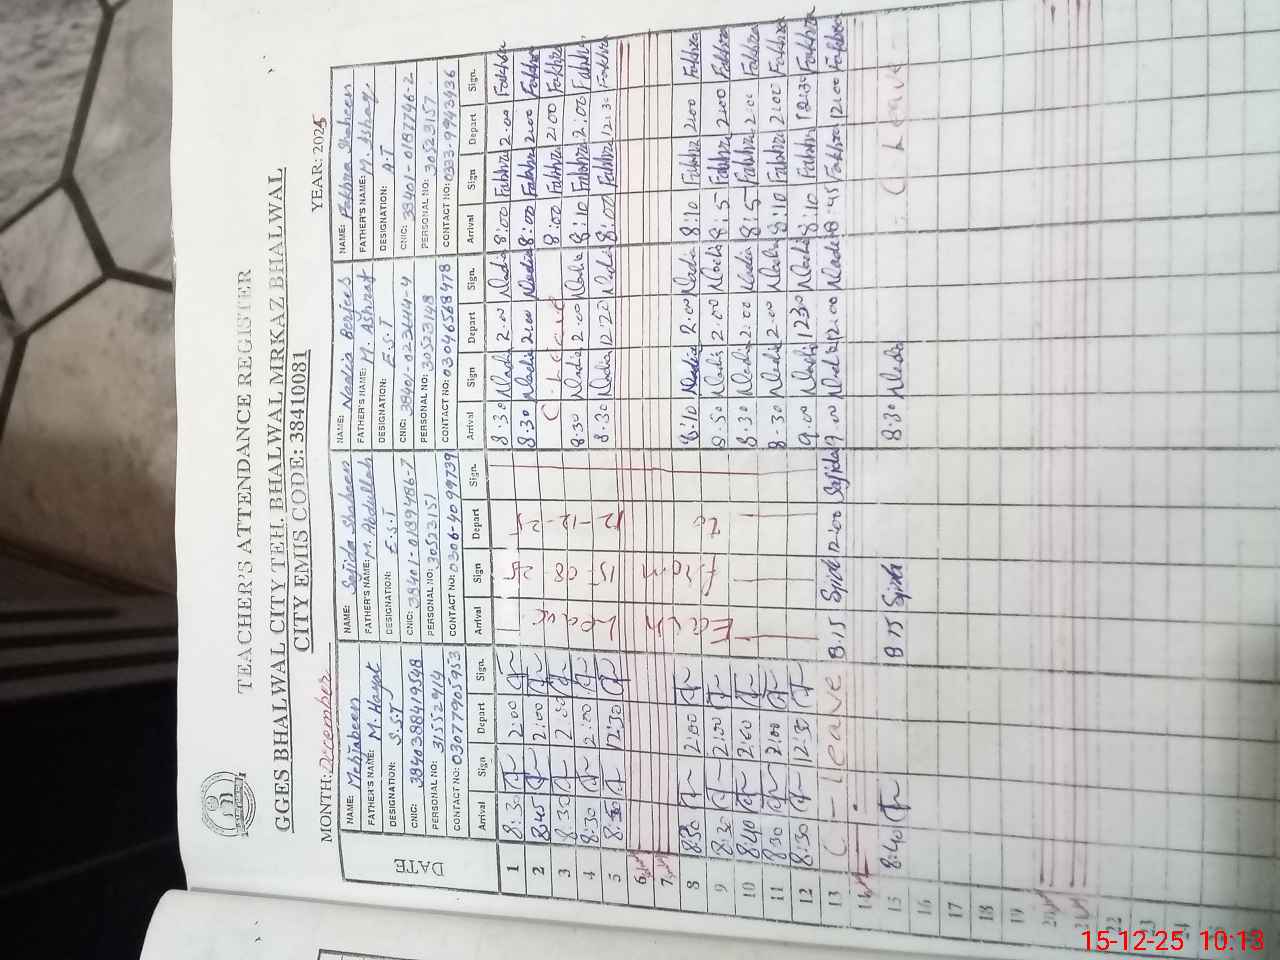 TEACHER'S ATTENDANCE REGISTER
GGES BHALWAL CITY TEH. BHALWAL MRKAZ BHALWAL
CITY EMIS CODE: 38410081
MONTH: December YEAR: 2025
DATE
NAME: Mehjabeen
FATHER'S NAME: M. Hayat
DESIGNATION: S.S.T
CNIC: 3840388941958
PERSONAL NO: 31552914
CONTACT NO: 03077905953
NAME: Sajida Shaheen
FATHER'S NAME: M. Abdullah
DESIGNATION: E.S.T
CNIC: 38401-0189486-7
PERSONAL NO: 30523151
CONTACT NO: 0306-4099739
NAME: Nadia Benfees
FATHER'S NAME: M. Ashraf
DESIGNATION: E.S.T
CNIC: 38401-0222444-4
PERSONAL NO: 30523148
CONTACT NO: 03046568978
NAME: Fakhra Shaheen
FATHER'S NAME: M. Ashraf
DESIGNATION: A.T
CNIC: 38401-0187746-2
PERSONAL NO: 30523157
CONTACT NO: 0333-9943936
Arrival Sign Depart Sign. Arrival Sign Depart Sign. Arrival Sign Depart Sign. Arrival Sign Depart Sign.
1 8:30 2:00 8:30 Nadia 2:00 Nadia 8:00 Fakhra 2:00 Fakhra
2 8:45 2:00 8:30 Nadia 2:00 Nadia 8:00 Fakhra 2:00 Fakhra
3 8:30 2:00 C. Leave 8:00 Fakhra 2:00 Fakhra
4 8:30 2:00 8:30 Nadia 2:00 Nadia 8:10 Fakhra 2:00 Fakhra
5 8:30 12:30 8:30 Nadia 12:20 Nadia 8:00 Fakhra 12:30 Fakhra
6
7
8 8:30 2:00 8:10 Nadia 2:00 Nadia 8:10 Fakhra 2:00 Fakhra
9 8:30 2:00 8:30 Nadia 2:00 Nadia 8:5 Fakhra 2:00 Fakhra
10 8:40 2:00 8:30 Nadia 2:00 Nadia 8:5 Fakhra 2:00 Fakhra
11 8:30 2:00 8:30 Nadia 2:00 Nadia 8:10 Fakhra 2:00 Fakhra
12 8:30 12:30 9:00 Nadia 12:30 Nadia 8:10 Fakhra 12:30 Fakhra
Leave 15-08-25
From
to 12-12-25
13 C-leave 8:15 Sajida 12:00 Sajida 9:00 Nadia 12:00 Nadia 8:45 Fakhra 12:00 Fakhra
14
15 8:40 8:15 Sajida 8:30 Nadia C-Leave
16
17
18
19
20
21
22
23
24
15-12-25 10:13